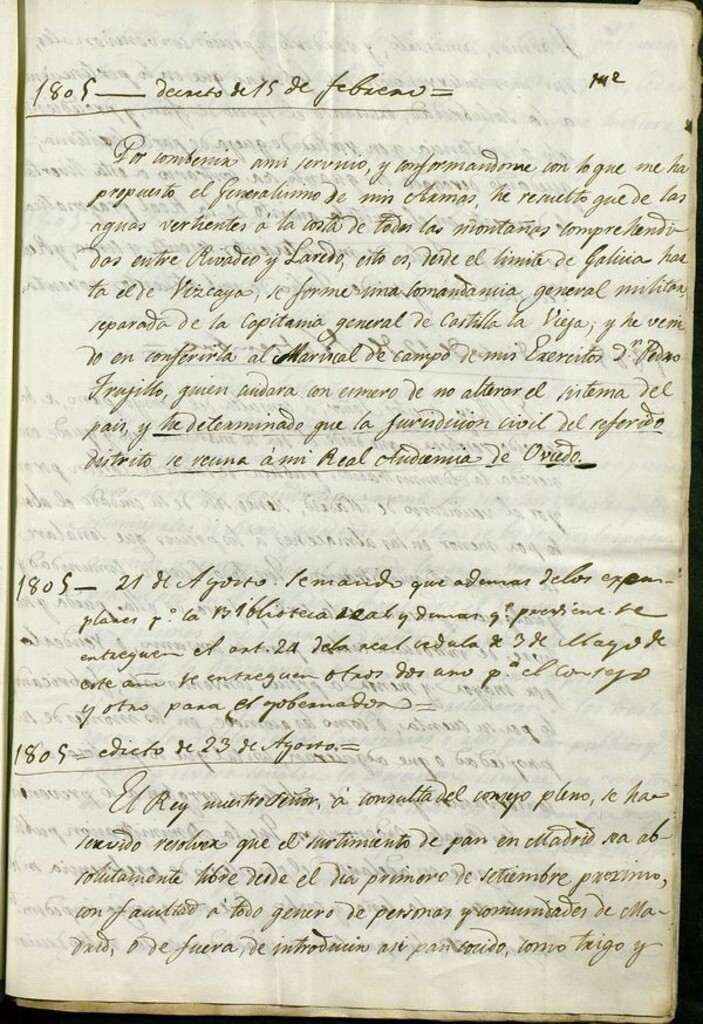 1805 — decreto de 15 de febrero =
Por combenir ami servicio, y conformandome con lo que me ha
propuesto el Generalisimo de mis Armas, he resuelto que de las
aguas vertientes a la costa de todas las montañas comprehendi-
das entre Rivadeo y Laredo, esto es, desde el limite de Galicia has
ta el de Vizcaya, se forme una comandancia general militar,
separada de la capitania general de Castilla la Vieja; y he veni
do en conferirla al Mariscal de campo de mis Exercitos Dn. Pedro
Trujillo, quien cuidara con esmero de no alterar el sistema del
pais, y he determinado que la jurisdicion civil del referido
distrito se reuna á mi Real Audiencia de Oviedo.
1805 — 21 de Agosto. Se mando que ademas delos exem-
plares pa. la Biblioteca real y demas qe. previene se
entreguen el art. 24 dela real cedula de 3 de Mayo de
este año se entreguen otros dos uno pa. el Consejo
y otro para el gobernador =
1805 = edicto de 23 de Agosto. =
El Rey nuestro señor, á consulta del consejo pleno, se ha
servido resolver que el surtimiento de pan en Madrid sea ab-
solutamente libre desde el dia primero de setiembre proximo,
con facultad á todo genero de personas y comunidades de Ma-
drid, ó de fuera, de introducir asi pan cocido, como trigo y